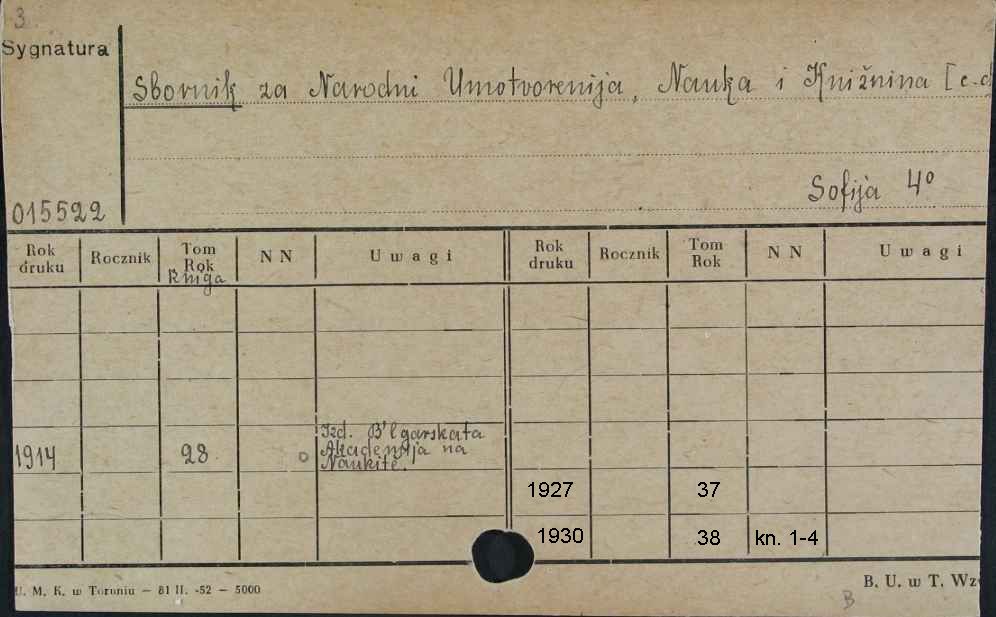 3
Sygnatura
Sbornik za Narodni Umotvorenija, Nauka i Knižnina [c.d
Sofija 4º
015522
Rok druku Rocznik Tom Rok Kniga NN Uwagi Rok druku Rocznik Tom Rok NN Uwagi
1914 28 Izd. B'lgarskata
Akademija na
Naukite.
1927 37
1930 38 kn. 1-4
U. M. K. w Toruniu – 81 II. -52 – 5000
B. U. w T. Wz
B